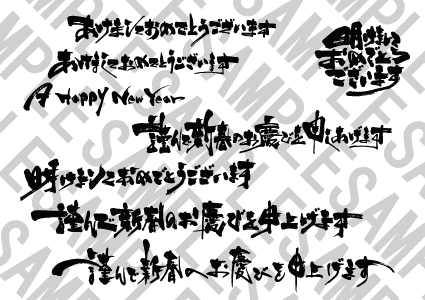 あけましておめでとうございます
あけましておめでとうございます
A Happy New Year
明けまして
おめでとう
ございます
謹んで新春のお慶びを申しあげます
明けましておめでとうございます
謹んで新春のお慶びを申上げます
謹んで新春のお慶びを申上げます
SAMPLE